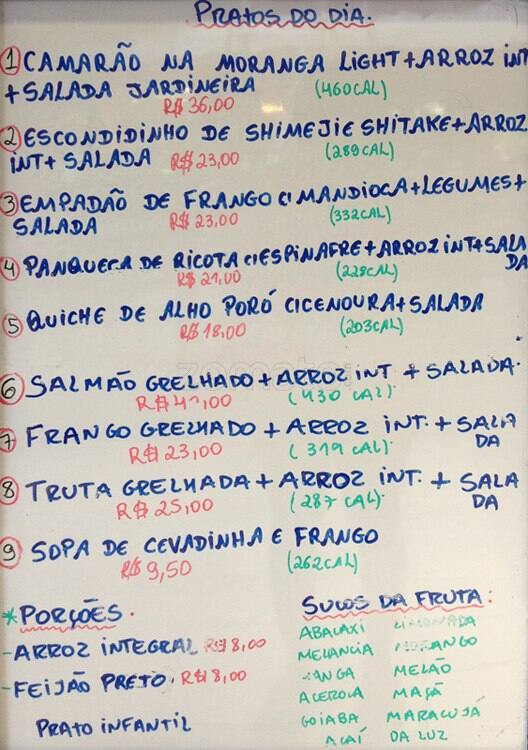 PRATOS DO DIA.
1 CAMARÃO NA MORANGA LIGHT + ARROZ INT
+ SALADA JARDINEIRA (460CAL)
R$ 36,00
2 ESCONDIDINHO DE SHIMEJI E SHITAKE + ARROZ
INT + SALADA R$ 23,00 (289CAL)
3 EMPADÃO DE FRANGO C/ MANDIOCA + LEGUMES +
SALADA R$ 23,00 (332CAL)
4 PANQUECA DE RICOTA C/ ESPINAFRE + ARROZ INT + SALA
DA
R$ 21,00 (228CAL)
5 QUICHE DE ALHO PORÓ C/ CENOURA + SALADA
R$ 18,00 (203CAL)
zomato
6 SALMÃO GRELHADO + ARROZ INT + SALADA.
(430 CAL).
7 FRANGO GRELHADO + ARROZ INT. + SALA
DA
R$ 23,00 (319 CAL).
8 TRUTA GRELHADA + ARROZ INT. + SALA
DA
R$ 25,00 (287 CAL).
9 SOPA DE CEVADINHA E FRANGO
R$ 9,50 (262CAL)
* PORÇÕES.
- ARROZ INTEGRAL R$ 8,00
- FEIJÃO PRETO. R$ 8,00
PRATO INFANTIL
SUCOS DA FRUTA:
ABACAXI LIMONADA
MELANCIA MORANGO
MANGA MELÃO
ACEROLA MAÇÃ
GOIABA MARACUJÁ
AÇAÍ DA LUZ